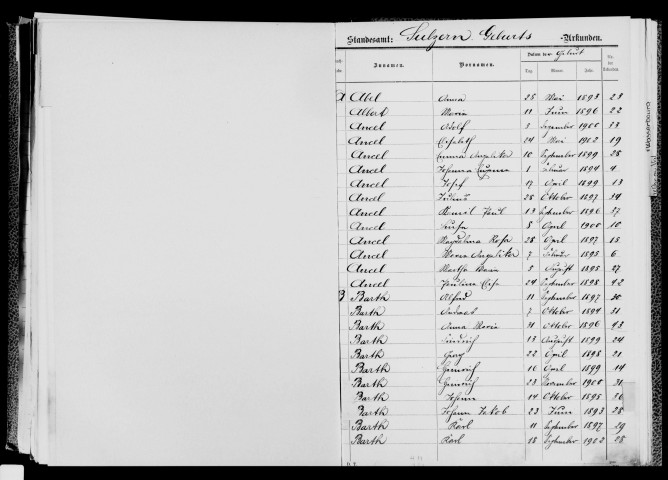 Standesamt: Sulzern Geburts -Urkunden.
Datum der Geburt
Zunamen. Vornamen. Tag. Monat. Jahr. Nr. der Urkunden
A Abel Anna 25 Mai 1893 23
Albert Maria 11 Juni 1896 22
Ancel Adolf 3 September 1900 33
Ancel Elisabeth 24 Mai 1902 19
Ancel Emma Angelika 10 September 1899 28
Ancel Johanna 1 Februar 1894 4
Ancel Josef 17 April 1899 13
Ancel Julius 28 Oktober 1897 34
Ancel Kamil Paul 13 September 1896 37
Ancel Luise 5 April 1900 10
Ancel Magdalena Rosa 28 April 1897 15
Ancel Maria Angelika 7 Februar 1895 6
Ancel Martha Maria 3 August 1895 27
Ancel Paulina Elise 24 September 1898 42
B Barth Alfred 11 September 1897 30
Barth 7 Oktober 1894 31
Barth Anna Maria 31 Oktober 1896 43
Barth Friedrich 13 August 1899 24
Barth Georg 22 April 1898 21
Barth Heinrich 10 April 1899 14
Barth Heinrich 23 November 1900 31
Barth Johann 14 Oktober 1895 36
Barth Johann Jakob 23 Juni 1893 28
Barth Karl 11 September 1897 29
Barth Karl 18 September 1902 28